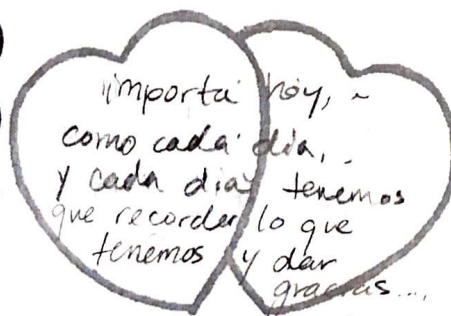 importa hoy,
como cada día,
y cada día tenemos
que recordar lo que
tenemos y dar
gracias...